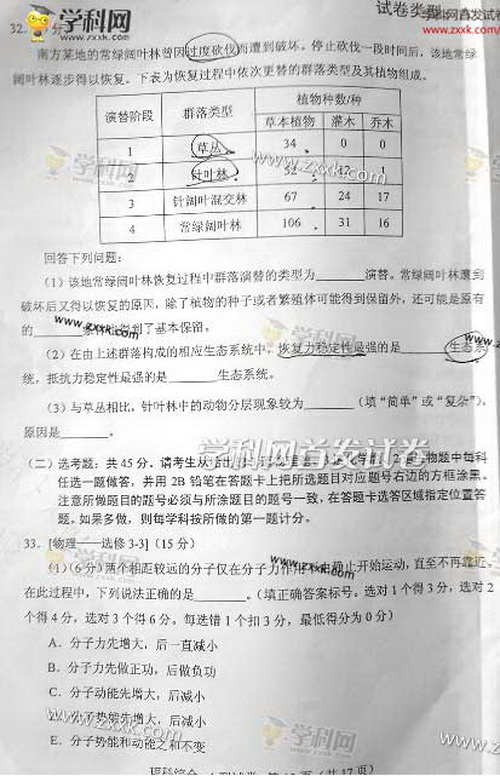 学科网
zxxk.com
试卷类型
www.zxxk.com
32.
分
南方某地的常绿阔叶林曾因过度砍伐而遭到破坏。停止砍伐一段时间后，该地常绿
阔叶林逐步得以恢复。下表为恢复过程中依次更替的群落类型及其植物组成。
演替阶段 群落类型 植物种数/种
草本植物 灌木 乔木
1 草丛 34 0 0
2 针叶林 52 12 1
3 针阔叶混交林 67 24 17
4 常绿阔叶林 106 31 16
回答下列问题：
（1）该地常绿阔叶林恢复过程中群落演替的类型为______演替。常绿阔叶林遭到
破坏后又得以恢复的原因，除了植物的种子或者繁殖体可能得到保留外，还可能是原有
的______条件也得到了基本保留。
（2）在由上述群落构成的相应生态系统中，恢复力稳定性最强的是______生态系
统，抵抗力稳定性最强的是______生态系统。
（3）与草丛相比，针叶林中的动物分层现象较为______（填“简单”或“复杂”），
原因是______。
学科网首发试卷
（二）选考题：共45分。请考生从给出的 2 物题中每科
任选一题做答，并用2B铅笔在答题卡上把所选题目对应题号右边的方框涂黑。
注意所做题目的题号必须与所涂题目的题号一致，在答题卡选答区域指定位置答
题。如果多做，则每学科按所做的第一题计分。
33．[物理——选修3-3]（15分）
（1）（6分）两个相距较远的分子仅在分子力作用下由静止开始运动，直至不再靠近。
在此过程中，下列说法正确的是______。（填正确答案标号。选对1个得3分，选对2
个得4分，选对3个得6分。每选错1个扣3分，最低得分为0分）
A．分子力先增大，后一直减小
B．分子力先做正功，后做负功
C．分子动能先增大，后减小
D．分子势能先增大，后减小
E．分子势能和动能之和不变
理科综合 A型试卷 第 页（共17页）